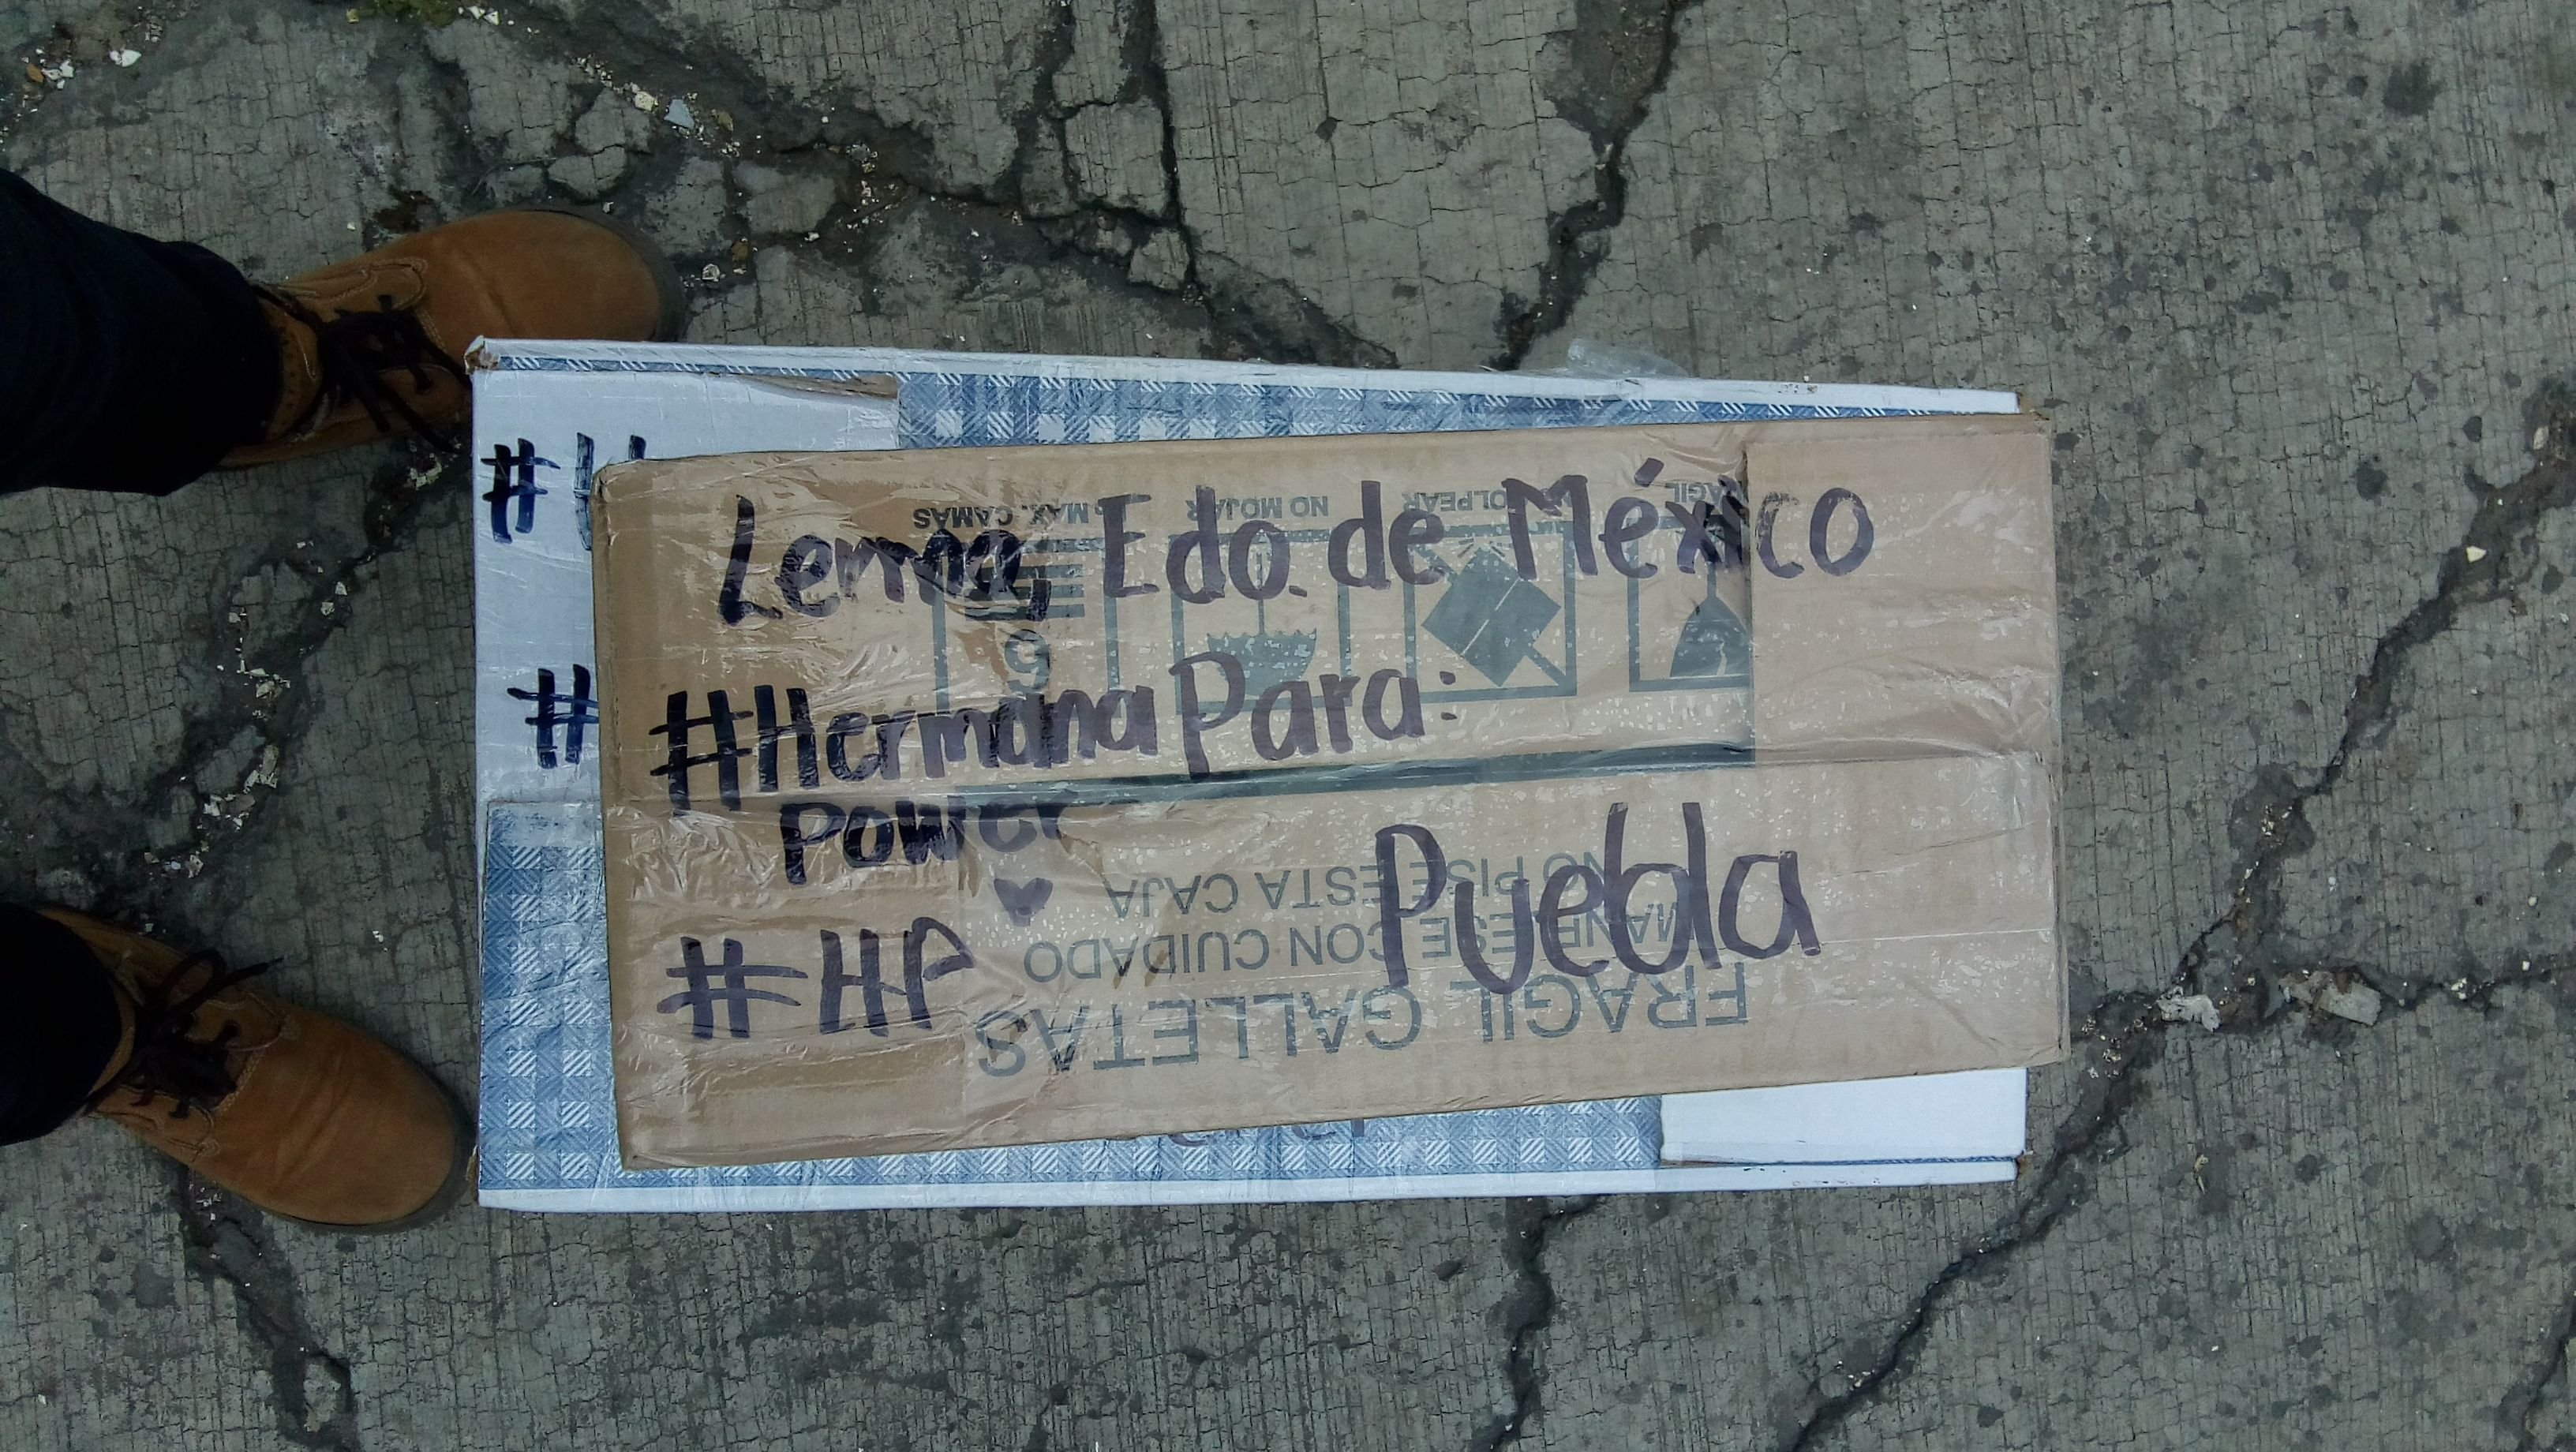 Lerma, Edo. de México
#Hermana Para:
Power
Puebla
#HP
#
#
MAX. CAMAS
NO MOJAR
5
NO PISE ESTA CAJA
MANEJESE CON CUIDADO
FRAGIL GALLETAS